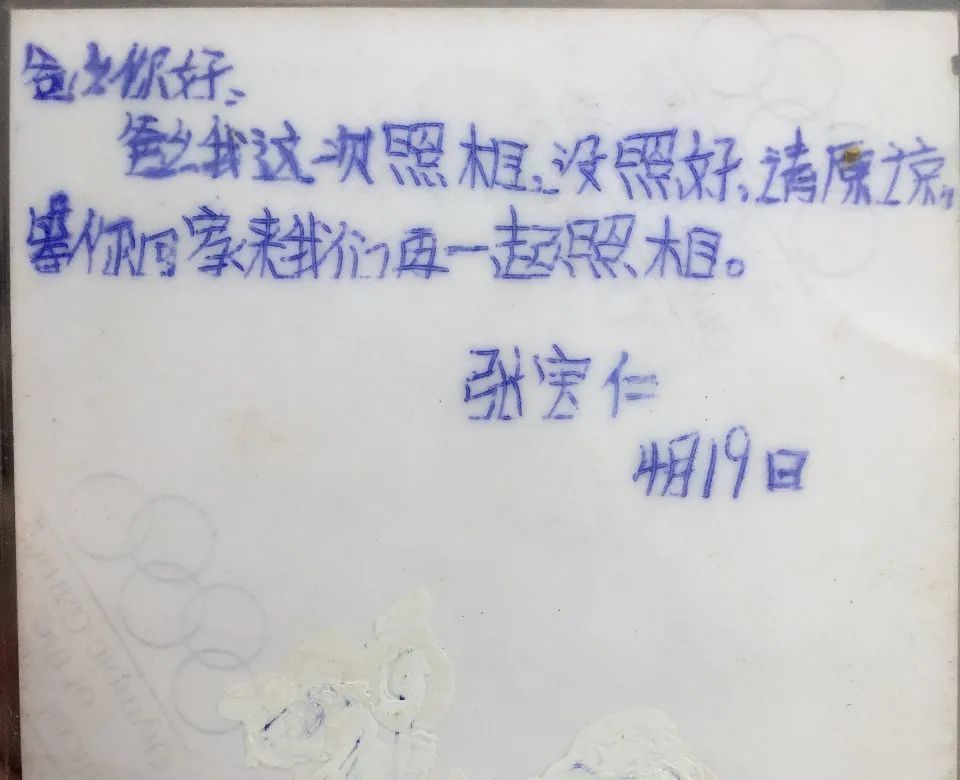 你好、
我这次照相、没照好、请原谅。
等你回家来我们再一起照相。
张宝仁
4月19日